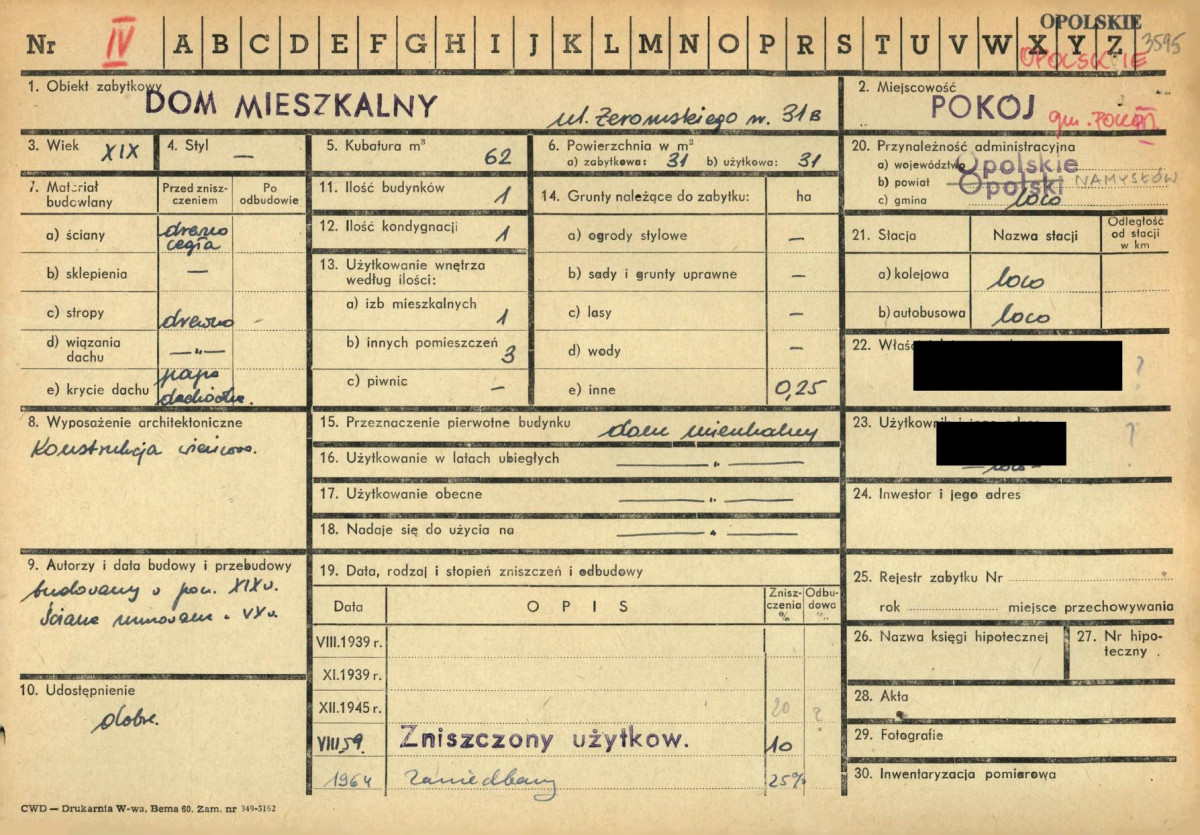 OPOLSKIE
Nr IV A B C D E F G H I J K L M N O P R S T U V W X Y Z 3595
OPOLSKIE
1. Obiekt zabytkowy
DOM MIESZKALNY
ul. Żeromskiego nr. 31B
2. Miejscowość
POKÓJ
gm. POKÓJ
3. Wiek XIX
4. Styl —
5. Kubatura m³ 62
6. Powierzchnia w m²
a) zabytkowa: 31 b) użytkowa: 31
20. Przynależność administracyjna
a) województwo Opolskie
b) powiat Opolski NAMYSŁÓW
c) gmina loco
7. Materiał budowlany
Przed zniszczeniem
Po odbudowie
a) ściany drewno cegła
b) sklepienia —
c) stropy drewno
d) wiązania dachu —„—
e) krycie dachu papa dachowa.
11. Ilość budynków 1
12. Ilość kondygnacji 1
13. Użytkowanie wnętrza
według ilości:
a) izb mieszkalnych 1
b) innych pomieszczeń 3
c) piwnic —
14. Grunty należące do zabytku: ha
a) ogrody stylowe —
b) sady i grunty uprawne —
c) lasy —
d) wody —
e) inne 0,25
21. Stacja
Nazwa stacji
Odległość od stacji w km
a) kolejowa loco
b) autobusowa loco
22. ?
23. Użytkownik i jego adres ?
— loco —
24. Inwestor i jego adres
8. Wyposażenie architektoniczne
Konstrukcja wieńcowa.
15. Przeznaczenie pierwotne budynku dom mieszkalny
16. Użytkowanie w latach ubiegłych —„—
17. Użytkowanie obecne —„—
18. Nadaje się do użycia na —„—
9. Autorzy i data budowy i przebudowy
budowany w poł. XIX w.
Ściane murowane w XX w.
10. Udostępnienie
dobre.
19. Data, rodzaj i stopień zniszczeń i odbudowy
Data
OPIS
Zniszczenia %
Odbudowa %
VIII.1939 r.
XI.1939 r.
XII.1945 r. 20 ?
VIII 59. Zniszczony użytkow. 10
1964 zaniedbany 25%
25. Rejestr zabytku Nr
rok miejsce przechowywania
26. Nazwa księgi hipotecznej
27. Nr hipoteczny
28. Akta
29. Fotografie
30. Inwentaryzacja pomiarowa
CWD — Drukarnia W-wa, Bema 60. Zam. nr 349-5162